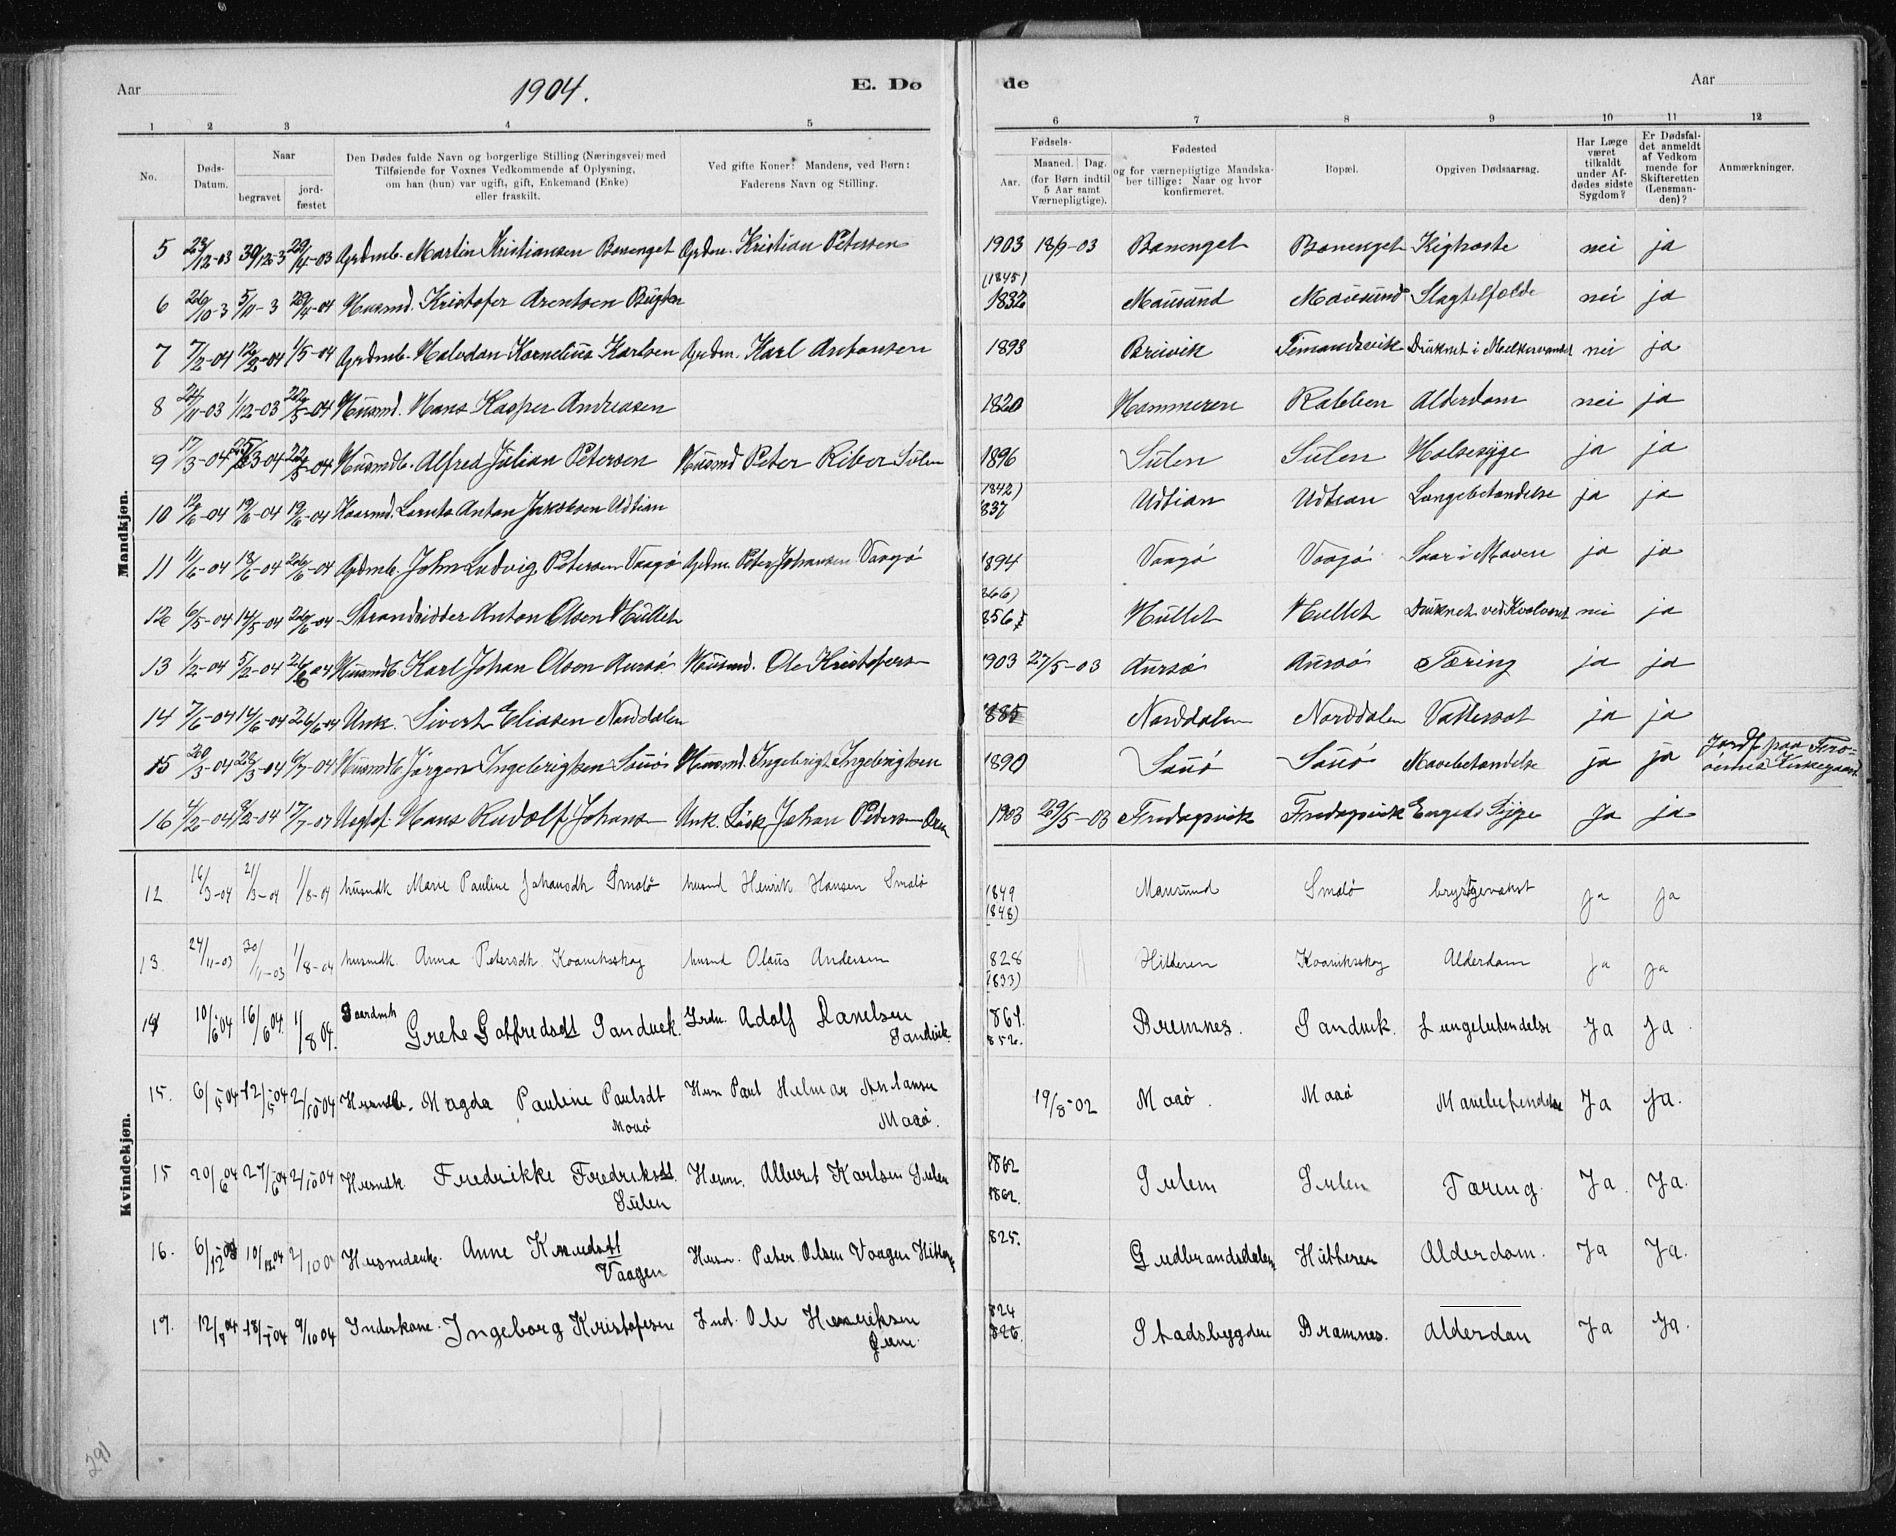 Aar 1904. E. Dø de Aar
1 2 3 4 5 6 7 8 9 10 11 12
No. Døds-Datum. Naar begravet jordfæstet Den Dødes fulde Navn og borgerlige Stilling (Næringsvei) med Tilføiende for Voxnes Vedkommende af Oplysning, om han (hun) var ugift, gift, Enkemand (Enke) eller fraskilt. Ved gifte Koner: Mandens, ved Børn: Faderens Navn og Stilling. Fødsels- Aar. Maaned. Dag. (for Børn indtil 5 Aar samt Værnepligtige). Fødested og for værnepligtige Mandskaber tillige: Naar og hvor konfirmeret. Bopæl. Opgiven Dødsaarsag. Har Læge været tilkaldt under Afdødes sidste Sygdom? Er Dødsfaldet anmeldt af Vedkommende for Skifteretten (Lensmanden)? Anmærkninger.
Mandkjøn.
5 23/12-03 30/12-3 29/4-03 Grdmb. Martin Kristiansen Borenget Grdm. Kristian Petersen 1903 18/9-03 Borenget Borenget Kighoste nei ja
6 26/10-3 5/11-3 29/4-04 Husmd. Kristofer Arentsen Bugten (1845) 1832 Mausund Mausund Slagtilfælde nei ja
7 7/2-04 12/2-04 1/5-04 Grdmb. Halvdan Kornelius Karlsen Grdm. Karl Antonsen 1893 Breivik Druknet i nei ja
8 24/11-03 1/12-03 22/5-04 Husmd. Hans Kasper Andreasen 1820 Hammeren Rabben Alderdom nei ja
9 17/3-04 25/3-04 22/5-04 Husmdb. Alfred Julian Petersen Husmd Peter Riber Sulen 1896 Sulen Sulen Halsesyge ja ja
10 12/6-04 19/6-04 19/6-04 Kaarmd. Lornts Anton Jakobsen Udtian 1842) 837 Udtian Udtian Lungebetændelse ja ja
11 11/6-04 18/6-04 26/6-04 Grdmb. John Ludvig Petersen Vaagø Grdm. Peter Johansen Vaagø 1894 Vaagø Vaagø Saar i Maven ja ja
12 6/5-04 14/5-04 26/6-04 Strandsidder Anton Olsen Hullet 866) 856 Hullet Hullet Druknet ved nei ja
13 1/2-04 5/2-04 26/6 04 Husmdb Karl Johan Olsen Aursø Husmd. Ole Kristofersen 1903 27/5-03 Aursø Aursø Tæring ja ja
14 7/6-04 14/6-04 26/6-04 Unk. Sivert Eliasen Norddalen 1885 Norddalen Norddalen Vattersot ja ja
15 20/3-04 28/3-04 6/7-04 Husmdb Jørgen Ingebrigtsen Sauø Husmd. Ingebrigt Ingebrigtsen 1890 Sauø Sauø Mavebetændelse ja ja Jordf. paa Frøøernes Kirkegaard
16 4/2-04 8/2-04 17/7-04 Hans Rudolf Johans Unk. Løsk Johan Pedersen 1903 29/5-03 Fredagsvik Fredagsvik Engelsk Syge Ja ja
Kvindekjøn.
12 16/3-04 21/3-04 1/8-04 husmdk Marie Pauline Johansdtr Smalø husmd Henrik Hansen Smalø 1849 1848) Mausund Smalø brystsvulst ja ja
13. 24/11-03 30/11-03 1/8-04 husmdk. Anna Petersdtr. Kvarvikskog husmd Olaus Andersen 828 1833) Hitteren Kvarvikskog Alderdom ja ja
14 10/6 04 16/6 04. 1/8 04. Gaardmk Grete Gotfredsdt Sandvik. Grdm. Adolf Danelsen Sandvik. 1864. 852. Bremnes. Sandvik. Lungebetendelse Ja Ja
15. 6/5 04 12/5 04 2/10 04 Husmdb. Magda Pauline Paulsdt Maaø Husm Paul Helmar Maaø. 19/8-02 Maaø. Maaø Mavebetendelse Ja Ja.
15 20/6 04 27/6 04 2/10 04 Husmdk. Fredrikke Fredriksdt. Sulen Husm. Albert Karlsen Sulen 1862 1862. Sulen Sulen Tæring. Ja. Ja.
16. 6/12 03 10/12.04 2/10 0 Husmdenke. Anne Knudsdt Vaagen Husm. Peter Olsen Vaagen 825. Gudbrandsdalen Hitteren Alderdom. Ja Ja.
17. 12/7 04 18/7 04 9/10 04 Inderkone. Ingeborg Kristofersen Ind. Ole Henriksen 824 826. Stadsbygden Bramnes. Alderdom Ja Ja.
291